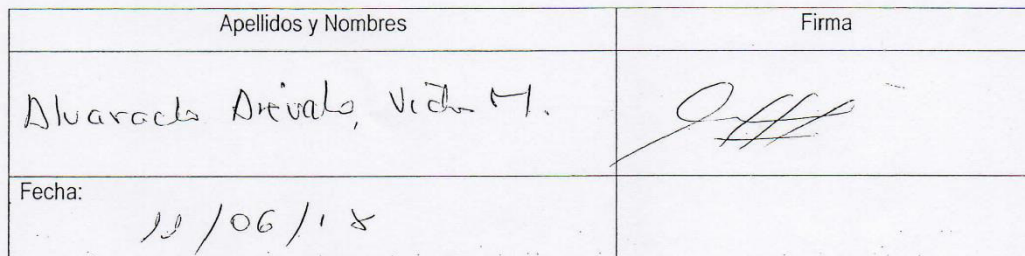 Apellidos y Nombres
Firma
Alvarado Arévalo, Victor M.
Fecha:
11/06/18